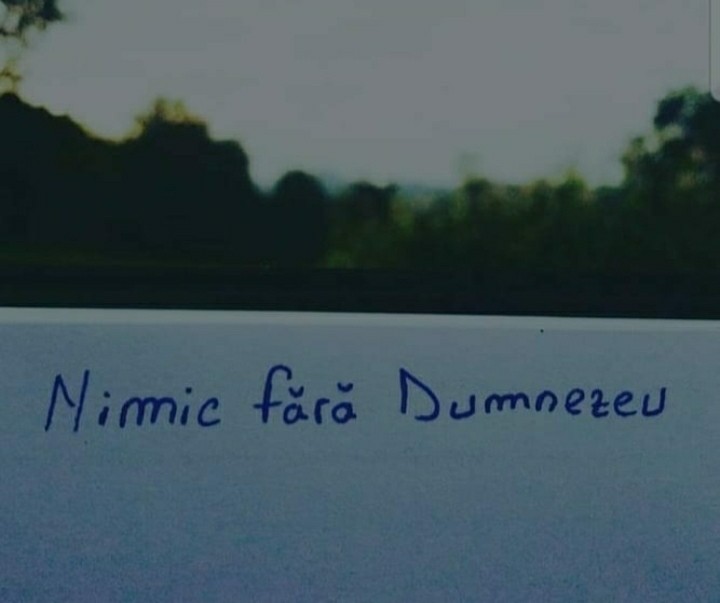 Nimic fără Dumnezeu